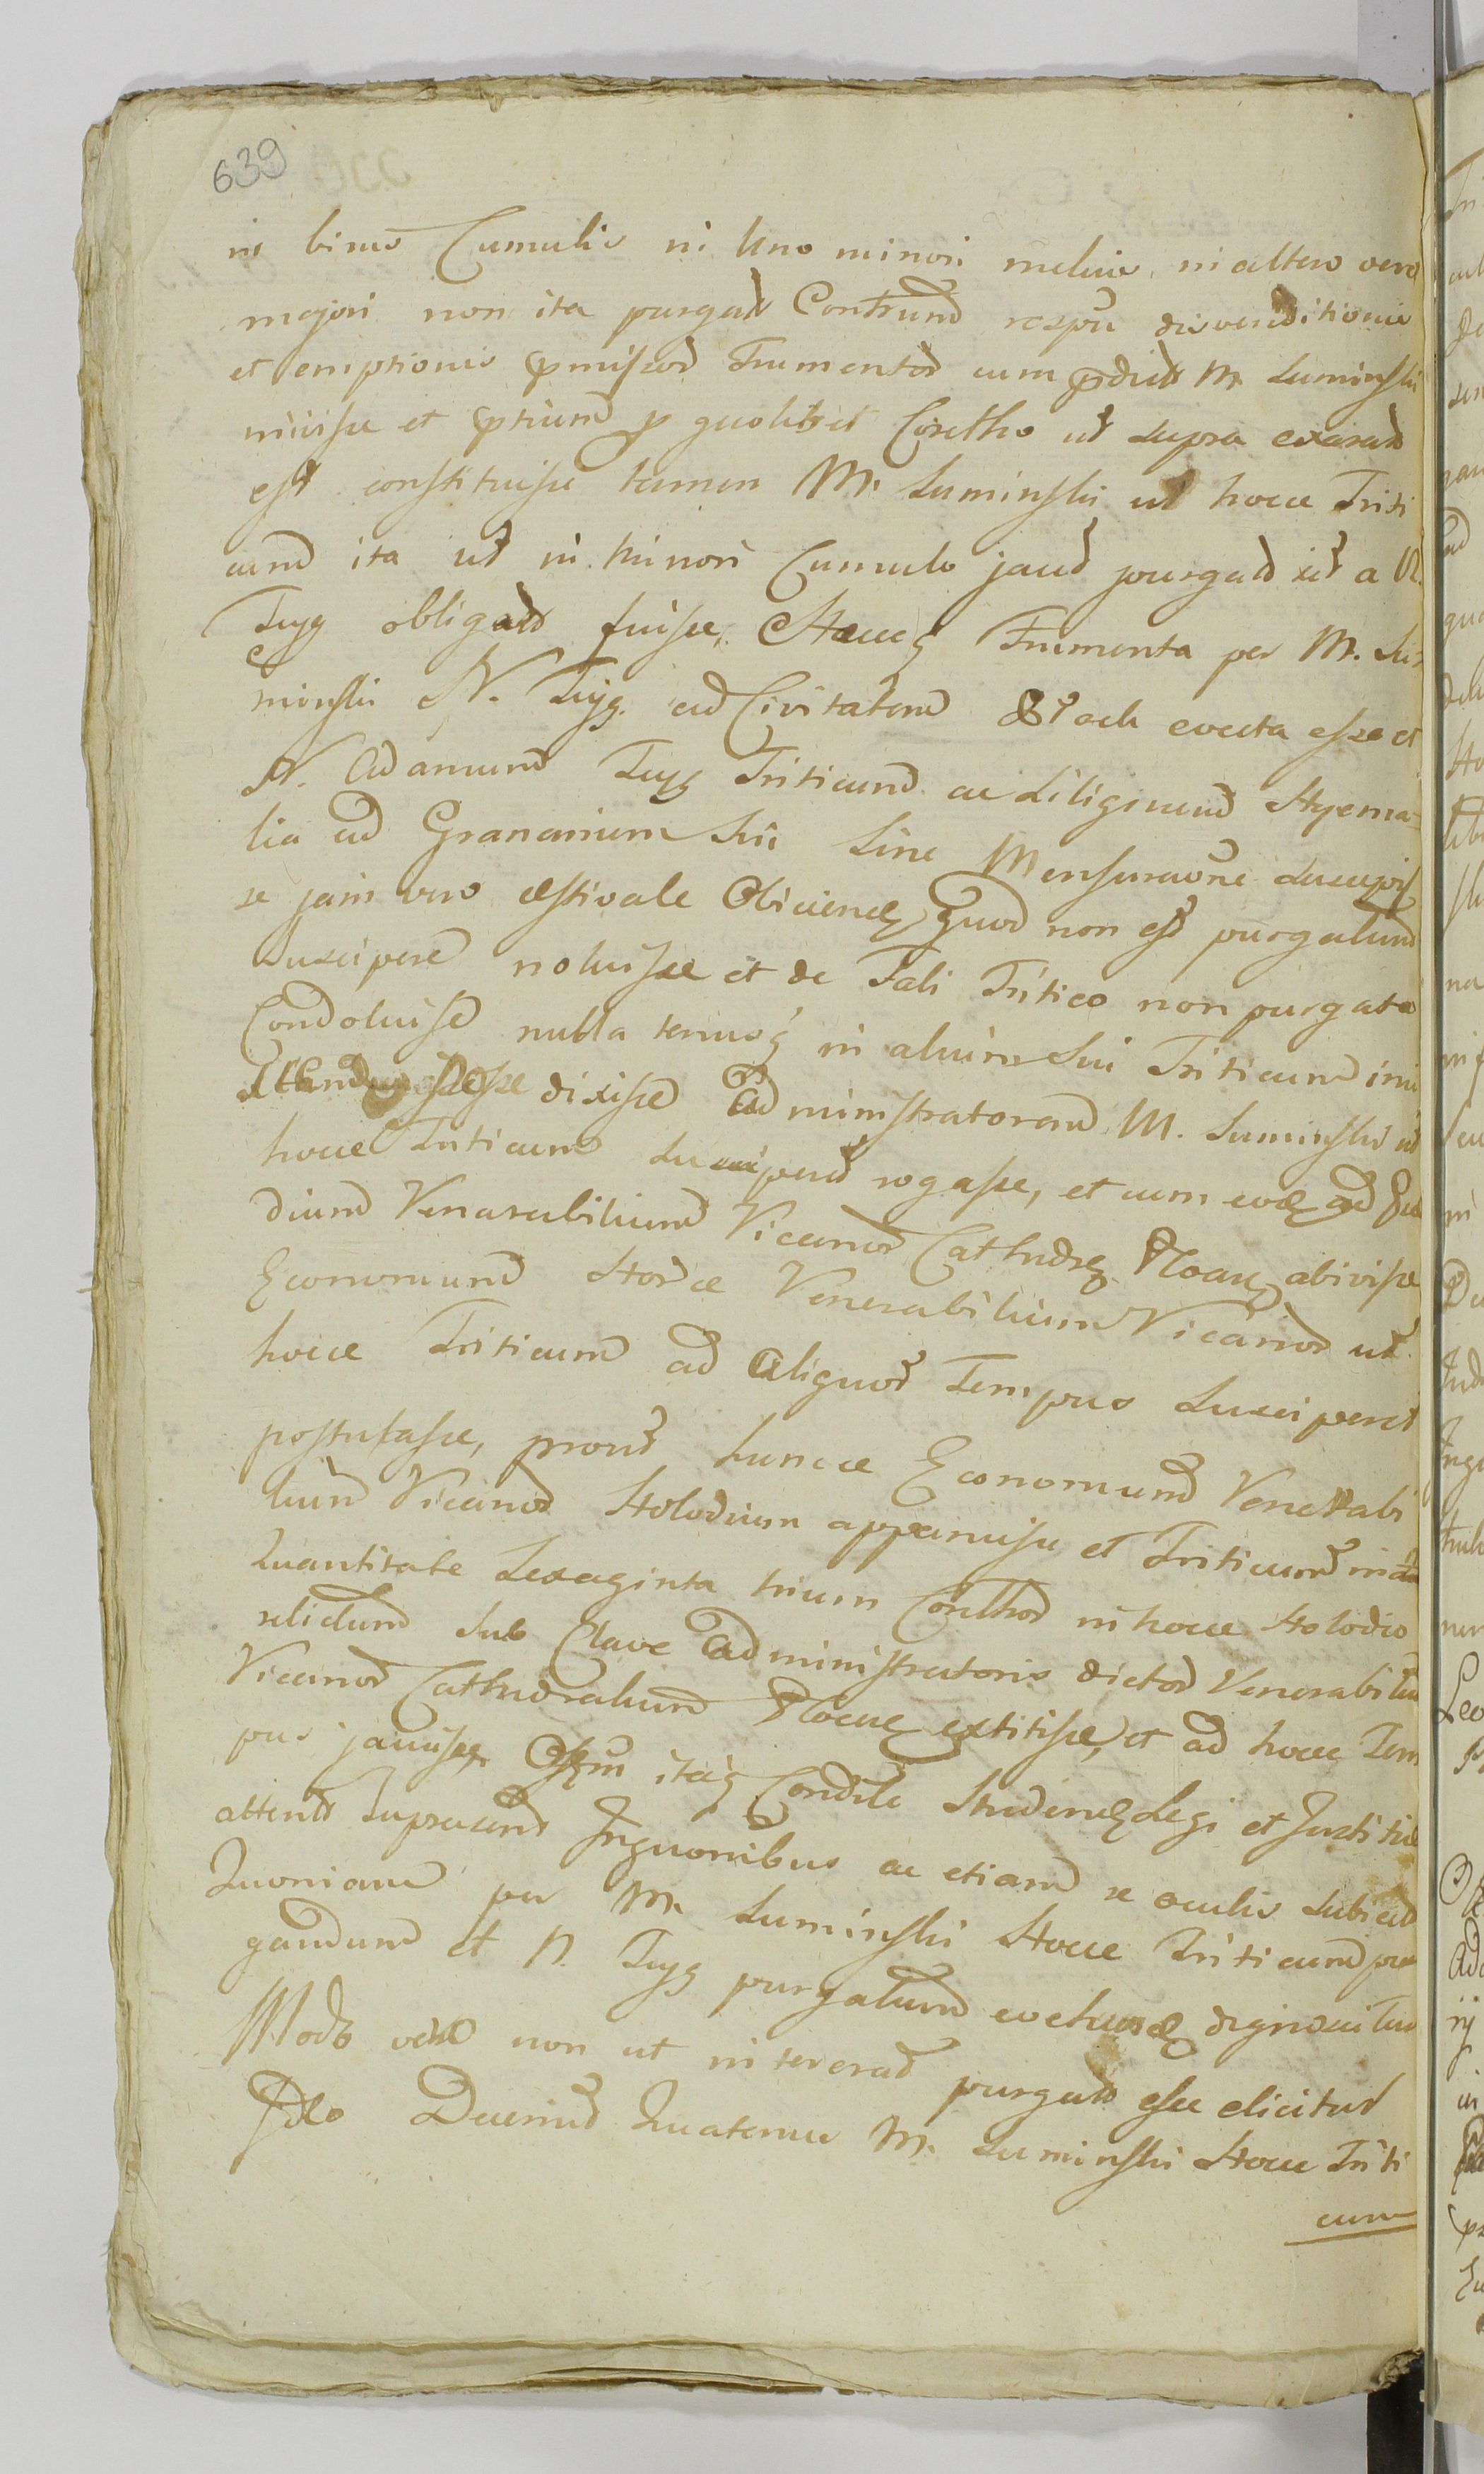 639
in binis Cumulis in Uno minori melius in altero vero
majori non ita purgat Contrund respu disvenditionis
et emptionis pmissor Frumentor cum pdicto M. Suminski
iniisse et ptium p quolibet Coretho ut supra exarat
est constituisse tamen M. Suminski ut hocce Triti
cum ita ut in minori Cumulo jaud purgat sit a N.
Tryg obligat fuisse, Haecq Frumenta per M. Su
minski N. Tryg. ad Civitatem Plock evecta esse et
N. Adamum Tryg Triticum ac Siliginem Hyema
lia ad Granarium Sui Sine Mensuraone suscepis
se jam vero aestivale Obiciendo Quod non est purgatum
Suscipere noluisse et de Tali Tritico non purgato
Condoluisse nulla tenusq in aluim Sui Triticum imi
dixisse Administratorem M. Suminski ut
hocce Triticum suscipend rogasse, et cum eodem ad Prae
dium Venerabilium Vicarior Cathedra Plocen abivisse
Economum Hor ce Venerabilium Vicarior ut
hocce Triticum ad Aliquod Tempus Susciperet
postulasse, prout huncce Economum Venerabi
lium Vicarior Holodium apperuisse et Triticum in
Quantitate Sexaginta trium Corethor in hocce Holodio
relictum Sub Clave Administratoris dictor Venerabilium
Vicarior Cathedralium Plocen extitisse, et ad hocce Tem
pus jacuisse Offm itaq Condle Studendo Legi et Justitiae
attentis Supra Inquonibus ac etiam se oculis Subiecit
Quoniam per M. Suminski Hocce Triticum pur
gandum et N. Tryg purgatum dignoscitur
Modo vero non ut inter erat purgat esse elicitur
Ideo Decernit Quatenus M. Suminski Hocce Triti
cum